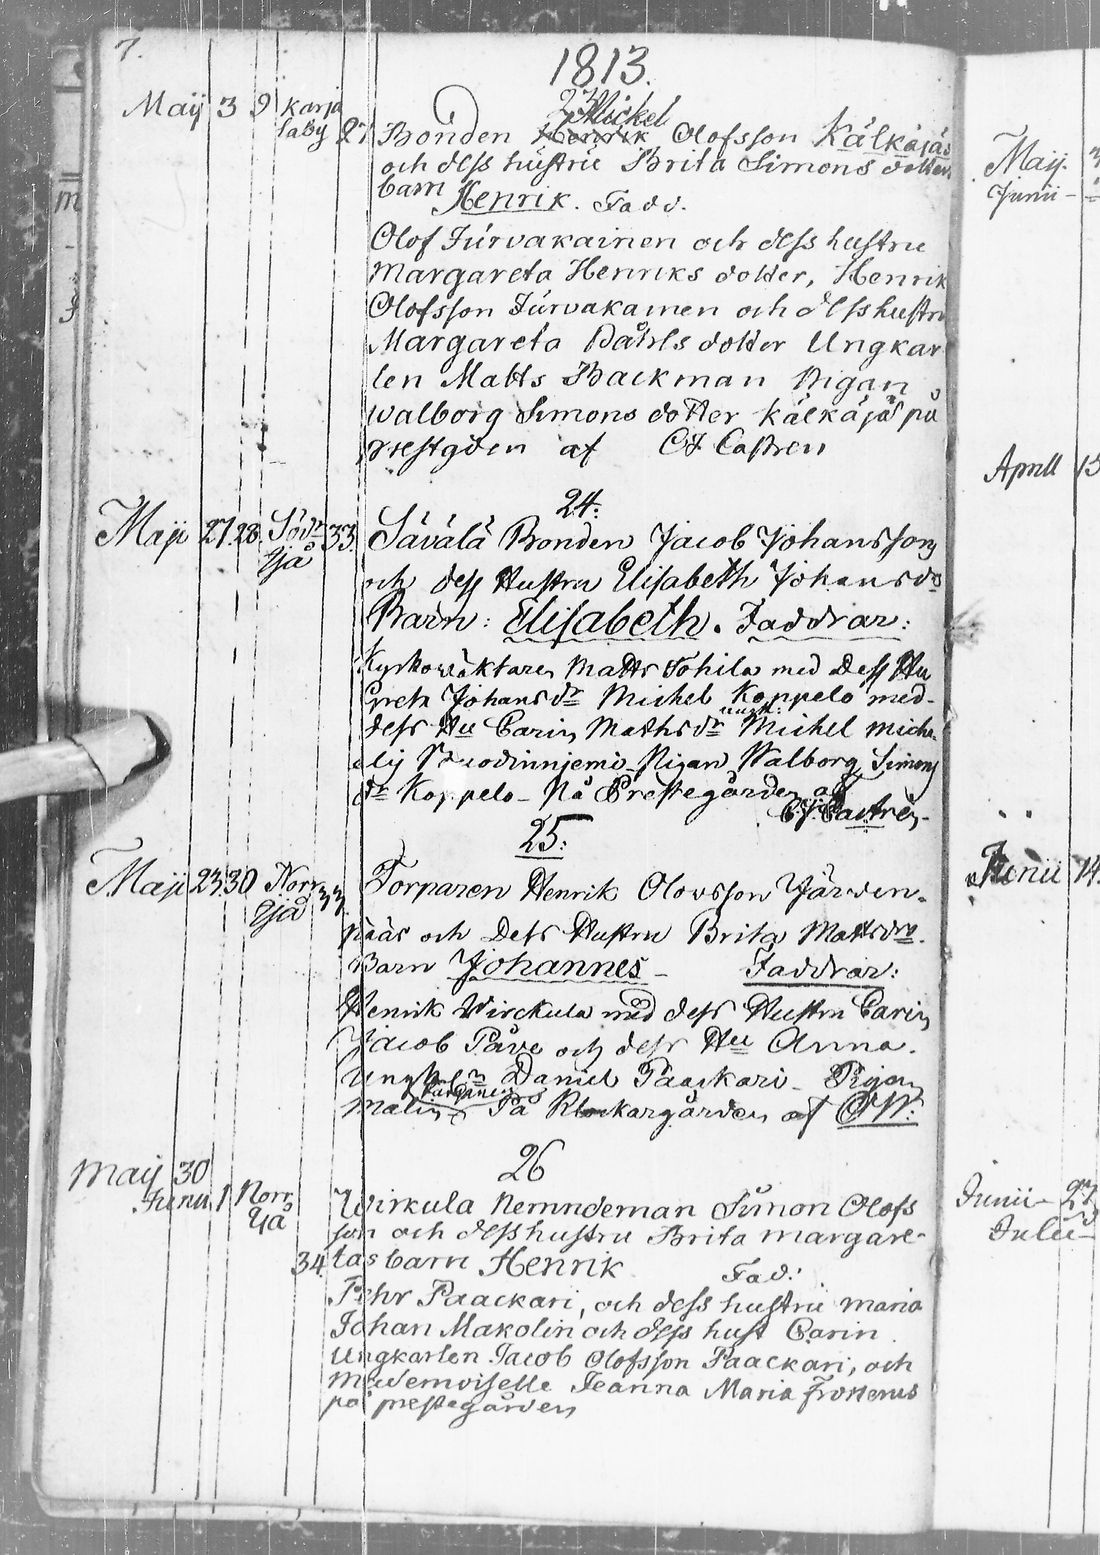 7.
1813.
23
Maij 3 9 Karja
laby 27
Mickel
Bonden Henrik Olofsson Kälkäjäs
och dess hustru Brita Simons dotters
barn Henrik. Fadd.
Olof Jürvakainen och dess hustru
Margareta Henriks dotter, Henrik
Olofsson Jürvakainen och dess hustru
Margareta Påhls dotter Ungkar
len Matts Backman Pigan
Walborg Simons dotter Kälkäjäs på
Prestgden af CJ Castren
24.
Maji 27. 28. Södr 33.
Sjå
Säválä Bonden Jacob Johansson
och dess Hustru Elisabeth Johansdr
Barn: Elisabeth. Faddrar:
Kyrkowäktaren Matts Tohila med Dess Hu
Greta Johansdr Michel Koppelo med
dess Hu Carin Mathsdr ungk: Michel Miche-
Pigan Walborg Simons
dr Koppelo - På Prestegården af
C.J. Castrén
25.
Maji 23. 30 Norr 33.
Sjå
Torparen Henrik Olovsson Järven-
pääs och Dess Hustru Brita Mattsdrs
Barn Johannes - Faddrar:
Henrik Wirckula med dess Hustru Carin
Jacob Påve och dess Hu Anna.
Daniel Paackari - Pigan
Malin På Klockargården af
26
Maij 30
Junii 1 Norr
Sjå
34
Wirkula Nemndeman Simon Olofs
son och dess hustru Brita Margare-
tas barn Henrik Fad:
Pehr Paackari, och dess hustru Maria
Johan Makolin och dess hust Carin
Ungkarlen Jacob Olofsson Paackari, och
Mademoiselle Jeanna Maria Frosterus
på prestegården
Maij.
Junii -
Aprill 13
Junii 14.
Junii - 27
Julii